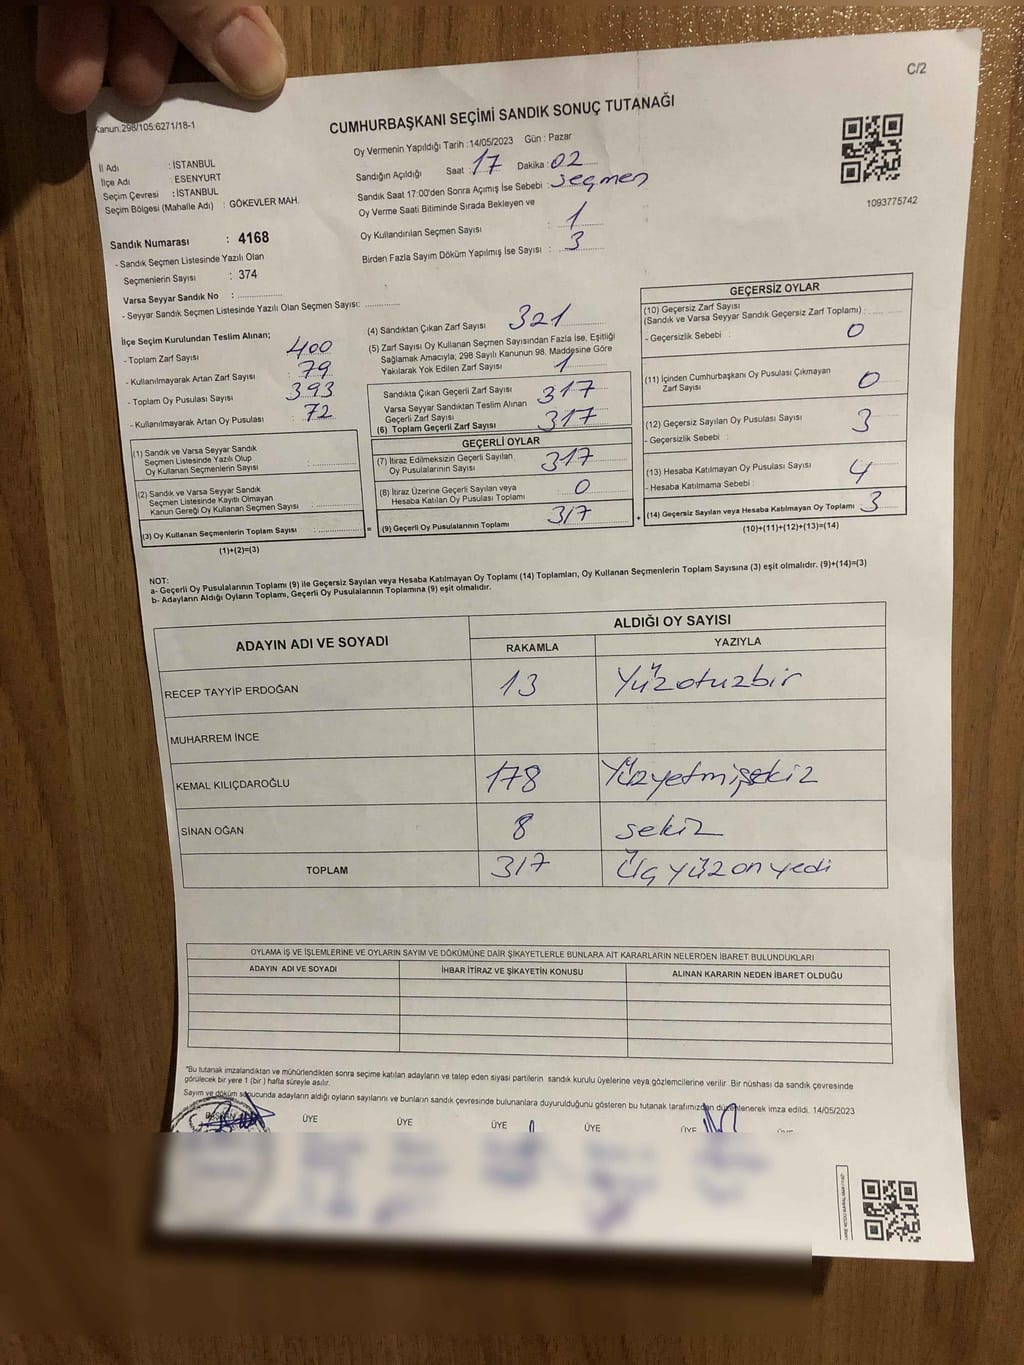 Kanun.298/105:6271/18-1
C/2
CUMHURBAŞKANI SEÇİMİ SANDIK SONUÇ TUTANAĞI
İl Adı : İSTANBUL
İlçe Adı : ESENYURT
Seçim Çevresi : İSTANBUL
Seçim Bölgesi (Mahalle Adı) : GÖKEVLER MAH.
Oy Vermenin Yapıldığı Tarih :14/05/2023 Gün : Pazar
Sandığın Açıldığı Saat 17 Dakika :02
Sandık Saat 17:00'den Sonra Açımış İse Sebebi : Seçmen
Oy Verme Saati Bitiminde Sırada Bekleyen ve
Oy Kullandırılan Seçmen Sayısı : 1
Birden Fazla Sayım Döküm Yapılmış İse Sayısı : 3
1093775742
Sandık Numarası : 4168
- Sandık Seçmen Listesinde Yazılı Olan
Seçmenlerin Sayısı : 374
Varsa Seyyar Sandık No : ..............
- Seyyar Sandık Seçmen Listesinde Yazılı Olan Seçmen Sayısı: ..........
İlçe Seçim Kurulundan Teslim Alınan;
- Toplam Zarf Sayısı : 400
- Kullanılmayarak Artan Zarf Sayısı : 79
- Toplam Oy Pusulası Sayısı : 393
- Kullanılmayarak Artan Oy Pusulası : 72
(1) Sandık ve Varsa Seyyar Sandık
Seçmen Listesinde Yazılı Olup
Oy Kullanan Seçmenlerin Sayısı : ..........
(2) Sandık ve Varsa Seyyar Sandık
Seçmen Listesinde Kayıtlı Olmayan
Kanun Gereği Oy Kullanan Seçmen Sayısı : ..........
(3) Oy Kullanan Seçmenlerin Toplam Sayısı : .......... =
(1)+(2)=(3)
(4) Sandıktan Çıkan Zarf Sayısı 321
(5) Zarf Sayısı Oy Kullanan Seçmen Sayısından Fazla İse, Eşitliği
Sağlamak Amacıyla, 298 Sayılı Kanunun 98. Maddesine Göre
Yakılarak Yok Edilen Zarf Sayısı 1
Sandıkta Çıkan Geçerli Zarf Sayısı 317
Varsa Seyyar Sandıktan Teslim Alınan
Geçerli Zarf Sayısı
(6) Toplam Geçerli Zarf Sayısı : 317
GEÇERLİ OYLAR
(7) İtiraz Edilmeksizin Geçerli Sayılan
Oy Pusulalarının Sayısı : 317
(8) İtiraz Üzerine Geçerli Sayılan veya
Hesaba Katılan Oy Pusulası Toplamı : 0
(9) Geçerli Oy Pusulalarının Toplamı : 317 +
GEÇERSİZ OYLAR
(10) Geçersiz Zarf Sayısı
(Sandık ve Varsa Seyyar Sandık Geçersiz Zarf Toplamı) :
- Geçersizlik Sebebi : 0
(11) İçinden Cumhurbaşkanı Oy Pusulası Çıkmayan
Zarf Sayısı 0
(12) Geçersiz Sayılan Oy Pusulası Sayısı 3
- Geçersizlik Sebebi :
(13) Hesaba Katılmayan Oy Pusulası Sayısı 4
- Hesaba Katılmama Sebebi :
(14) Geçersiz Sayılan veya Hesaba Katılmayan Oy Toplamı 3
(10)+(11)+(12)+(13)=(14)
NOT:
a- Geçerli Oy Pusulalarının Toplamı (9) ile Geçersiz Sayılan veya Hesaba Katılmayan Oy Toplamı (14) Toplamları, Oy Kullanan Seçmenlerin Toplam Sayısına (3) eşit olmalıdır. (9)+(14)=(3)
b- Adayların Aldığı Oyların Toplamı, Geçerli Oy Pusulalarının Toplamına (9) eşit olmalıdır.
ADAYIN ADI VE SOYADI
ALDIĞI OY SAYISI
RAKAMLA YAZIYLA
RECEP TAYYİP ERDOĞAN 13 Yüzotuzbir
MUHARREM İNCE
KEMAL KILIÇDAROĞLU 178 Yüzyetmişsekiz
SİNAN OĞAN 8 sekiz
TOPLAM 317 Üçyüzonyedi
OYLAMA İŞ VE İŞLEMLERİNE VE OYLARIN SAYIM VE DÖKÜMÜNE DAİR ŞİKAYETLERLE BUNLARA AİT KARARLARIN NELERDEN İBARET BULUNDUKLARI
ADAYIN ADI VE SOYADI İHBAR İTİRAZ VE ŞİKAYETİN KONUSU ALINAN KARARIN NEDEN İBARET OLDUĞU
*Bu tutanak imzalandıktan ve mühürlendikten sonra seçime katılan adayların ve talep eden siyasi partilerin sandık kurulu üyelerine veya gözlemcilerine verilir .Bir nüshası da sandık çevresinde
görülecek bir yere 1 (bir ) hafta süreyle asılır.
Sayım ve döküm sonucunda adayların aldığı oyların sayılarını ve bunların sandık çevresinde bulunanlara duyurulduğunu gösteren bu tutanak tarafımızdan düzenlenerek imza edildi. 14/05/2023
ÜYE ÜYE ÜYE ÜYE ÜYE